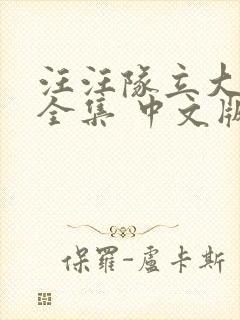 汪汪隊立大
全集 中文版
保羅-盧卡斯